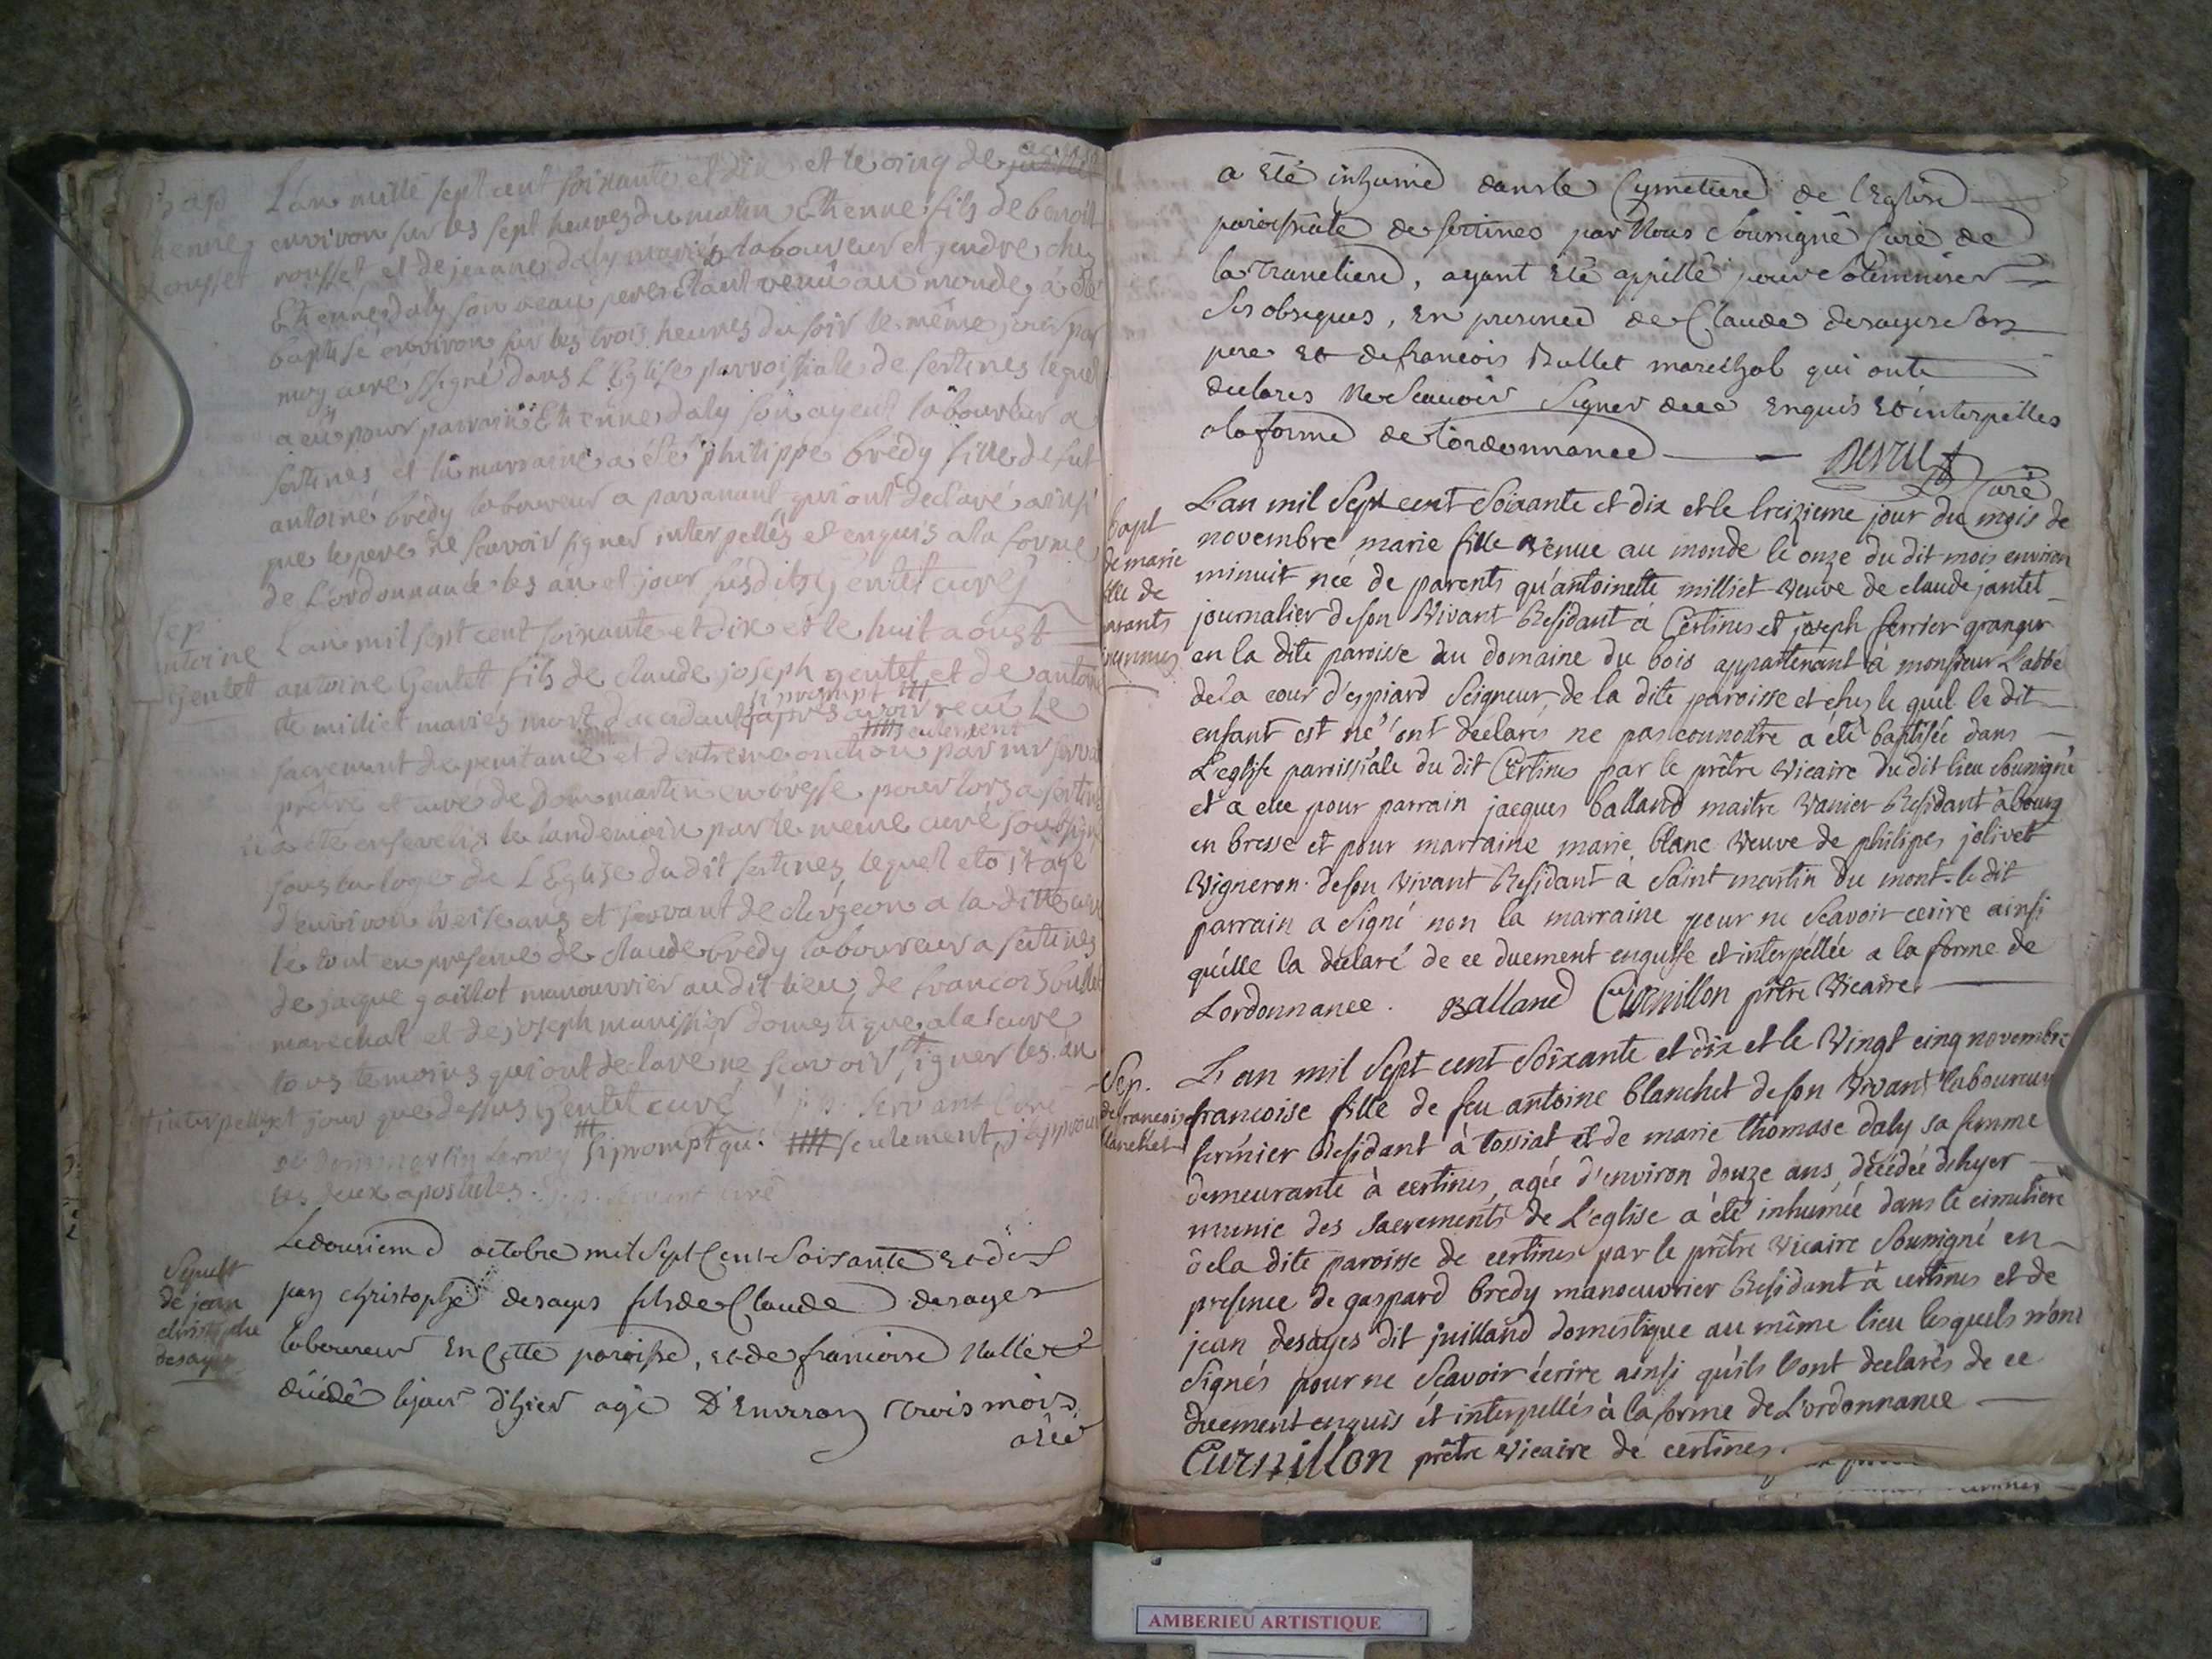 bap
L'an mille sept cent soixante et dix et le cinq de juillet
etienne
environ sur les sept heures du matin Etienne fils de benoit
rousset
rousset et de jeanne daly mariés laboureur et gendre chez
Etienne daly son beau pere étant venu au monde, a été
baptisé environ sur les trois heures du soir le même jour par
moy curé ssigné dans L'Eglise parroissiale de sertines lequel
a eu pour parrain Etienne daly son ayeul laboureur a
sertines et la marraine a été philippe brédy fille de fut
antoine brédy laboureur a qui ont declaré ainsi
que le pere ne scavoir signer interpellés et enquis a la forme
de L'ordonnance les an et jour susdits gentet curé
sep
antoine
gentet
L'an mil sept cent soixante et dix et le huit aoust
antoine gentet fils de claude joseph gentet et de antoine
si prompt ###
te milliet mariés mort d'accidant apres avoir reçu Le
### seulement
sacrement de penitance et d'extreme onction par mr servant
prêtre et curé de dommartin en bresse pour lors a sertines
a été enseveli le landemain par le meme curé soussigné
sous la loge de L'Eglise du dit sertines lequel etoit agé
d'environ treise ans et servant de clergeon a la ditte cure
le tout en presence de claude brédy laboureur a sertines
de jaque gaillot manouvrier au dit lieu, de francois bullet
marechal et de joseph domestique a la cure
tous temoins qui ont declaré ne scavoir signer les an
† interpellés et jour que dessus gentet curé j. n. servant curé
de dommartin ### si prompt que #### seulement, j'approuve
les deux apostilles. j. n. servant curé
Sepult
de jean
christophe
desayes
Le dousieme octobre mil Sept Cent Soixante Et dix
jean christophe desayes fils de Claude desayes
laboureur En Cette paroisse, et de francoise Nallet
décédé le jour d'hier agé D'Environ trois mois
a été
a Eté inhumé dans le Cymetiere de l'Eglise
paroissiale de sertines par Nous Soussigné Curé de
la Trancliere, ayant Eté appellé pour Solemniser
Ses obseques, En presence de Claude desayes Son
pere Et de francois Bullet marechal qui ont
declarés Ne Scauoir Signer de ce Enquis Et interpellés
a la forme de l'ordonnance — Curé
bapt
de marie
fille de
parants
inconnus
L'an mil Sept cent Soixante et dix et le treizieme jour du mois de
novembre marie fille venue au monde le onze du dit mois environ
minuit née de parents qu'antoinette milliet veuve de claude jantet
journalier de son Vivant Residant à Certines et joseph ferrier granger
en la dite paroisse au domaine du bois appartenant à monsieur L'abbé
de la cour d'espiard Seigneur de la dite paroisse et chez le quel le dit
enfant est né, ont declarés ne pas connoitre a été baptisée dans
L'eglise paroissiale du dit Certines par le prêtre Vicaire du dit lieu Soussigné
et a eue pour parrain jacques balland maitre Vanier Residant à bourg
en bresse et pour marraine marie blanc Veuve de philipes jolivet
Vigneron de son vivant Residant à Saint martin du mont. le dit
parrain a Signé non la marraine pour ne Scavoir ecrire ainsi
qu'ille la declaré de ce duement enquise et interpellée a la forme de
Lordonnance. Balland Curnillon prêtre Vicaire.
Sep.
de francoise
blanchet
L'an mil Sept cent Soixante et dix et le Vingt cinq novembre
francoise fille de feu antoine blanchet de son Vivant laboureur
fermier Residant à tossiat et de marie thomase daly sa femme
demeurante à certines, agée d'environ douze ans, décédée d'hyer
munie des Sacrements de L'eglise a été inhumée dans le cimetiere
de la dite paroisse de certines par le prêtre Vicaire Soussigné en
presence de gaspard bredy manoeuvrier Residant à certines et de
jean desayes dit juilland domestique au même lieu lesquels n'ont
Signés pour ne Scavoir écrire ainsi qu'ils l'ont declarés de ce
duement enquis et interpellés à la forme de L'ordonnance
Curnillon prêtre Vicaire de certines.
AMBERIEU ARTISTIQUE